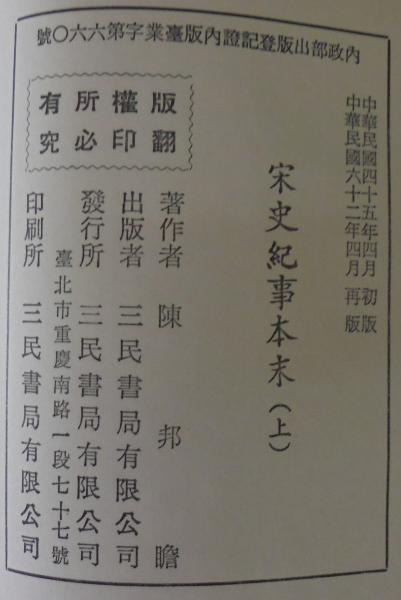 內政部出版登記證內版臺業字第六六〇號
中華民國四十五年四月 初版
中華民國六十二年四月 再版
宋史紀事本末(上)
版權所有
翻印必究
著作者 陳邦瞻
出版者 三民書局有限公司
發行所 三民書局有限公司
臺北市重慶南路一段七十七號
印刷所 三民書局有限公司